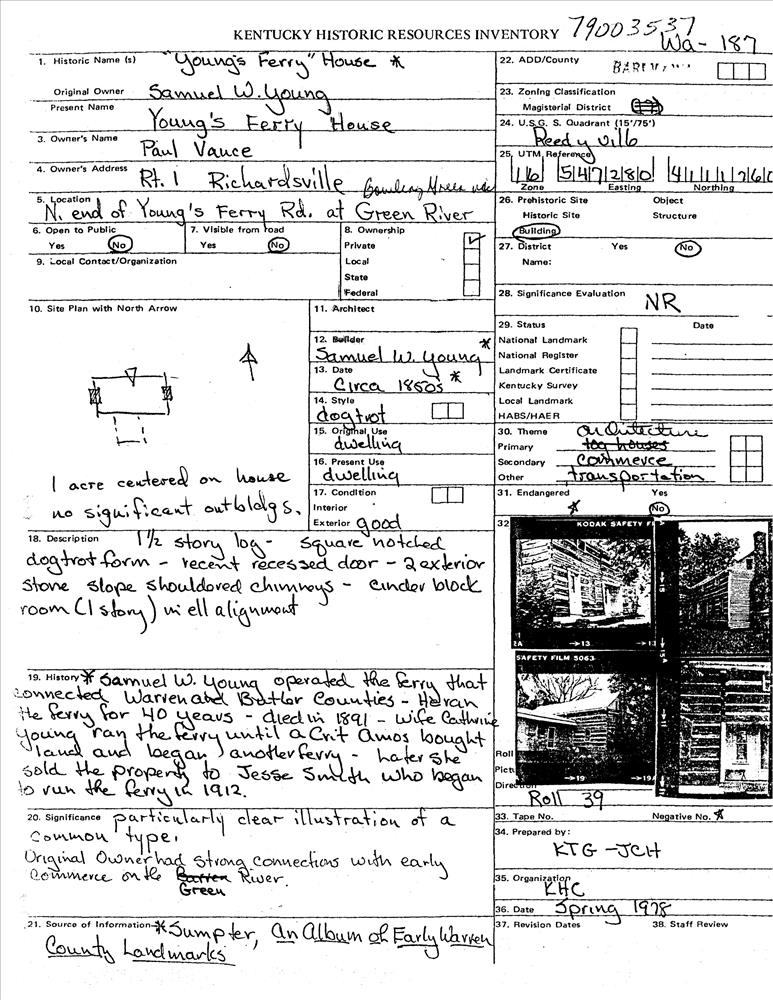 KENTUCKY HISTORIC RESOURCES INVENTORY 79003537
Wa-187
1. Historic Name (s) "Young's Ferry" House *
Original Owner Samuel W. Young
Present Name Young's Ferry House
3. Owner's Name Paul Vance
4. Owner's Address Rt. 1 Richardsville Bowling Green
5. Location N. end of Young's Ferry Rd. at Green River
6. Open to Public
Yes No
7. Visible from road
Yes No
8. Ownership
Private
Local
State
Federal
9. Local Contact/Organization
10. Site Plan with North Arrow
1 acre centered on house
no significant outbldgs.
11. Architect
12. Builder *
Samuel W. Young
13. Date
Circa 1850s *
14. Style
dogtrot
15. Original Use
dwelling
16. Present Use
dwelling
17. Condition
Interior
Exterior good
18. Description 1½ story log - square notched
dogtrot form - recent recessed door - 2 exterior
stone slope shouldored chimneys - cinder block
room (1 story) in ell alignment
19. History * Samuel W. Young operated the ferry that
connected Warren and Butler Counties - He ran
the ferry for 40 years - died in 1891 - Wife Cathrine
Young ran the ferry until a Crit Amos bought
land and began another ferry - Later she
sold the property to Jesse Smith who began
to run the ferry in 1912.
20. Significance particularly clear illustration of a
common type.
Original Owner had strong connections with early
commerce on the Barren River.
Green
21. Source of Information * Sumpter, An Album of Early Warren
County Landmarks
22. ADD/County
23. Zoning Classification
Magisterial District
24. U.S.G. S. Quadrant (15'/75')
Reedyville
25. UTM Reference
16 547280 411176
Zone Easting Northing
26. Prehistoric Site Object
Historic Site Structure
Building
27. District Yes No
Name:
28. Significance Evaluation NR
29. Status Date
National Landmark
National Register
Landmark Certificate
Kentucky Survey
Local Landmark
HABS/HAER
30. Theme architecture
Primary log houses
Secondary commerce
Other transportation
31. Endangered Yes
* No
32
KODAK SAFETY F
2A →13 →13
SAFETY FILM 5063
→19 →19
Roll
Pictu
Direction
Roll 39
33. Tape No. Negative No. *
34. Prepared by:
KTG - JCH
35. Organization
KHC
36. Date Spring 1978
37. Revision Dates 38. Staff Review